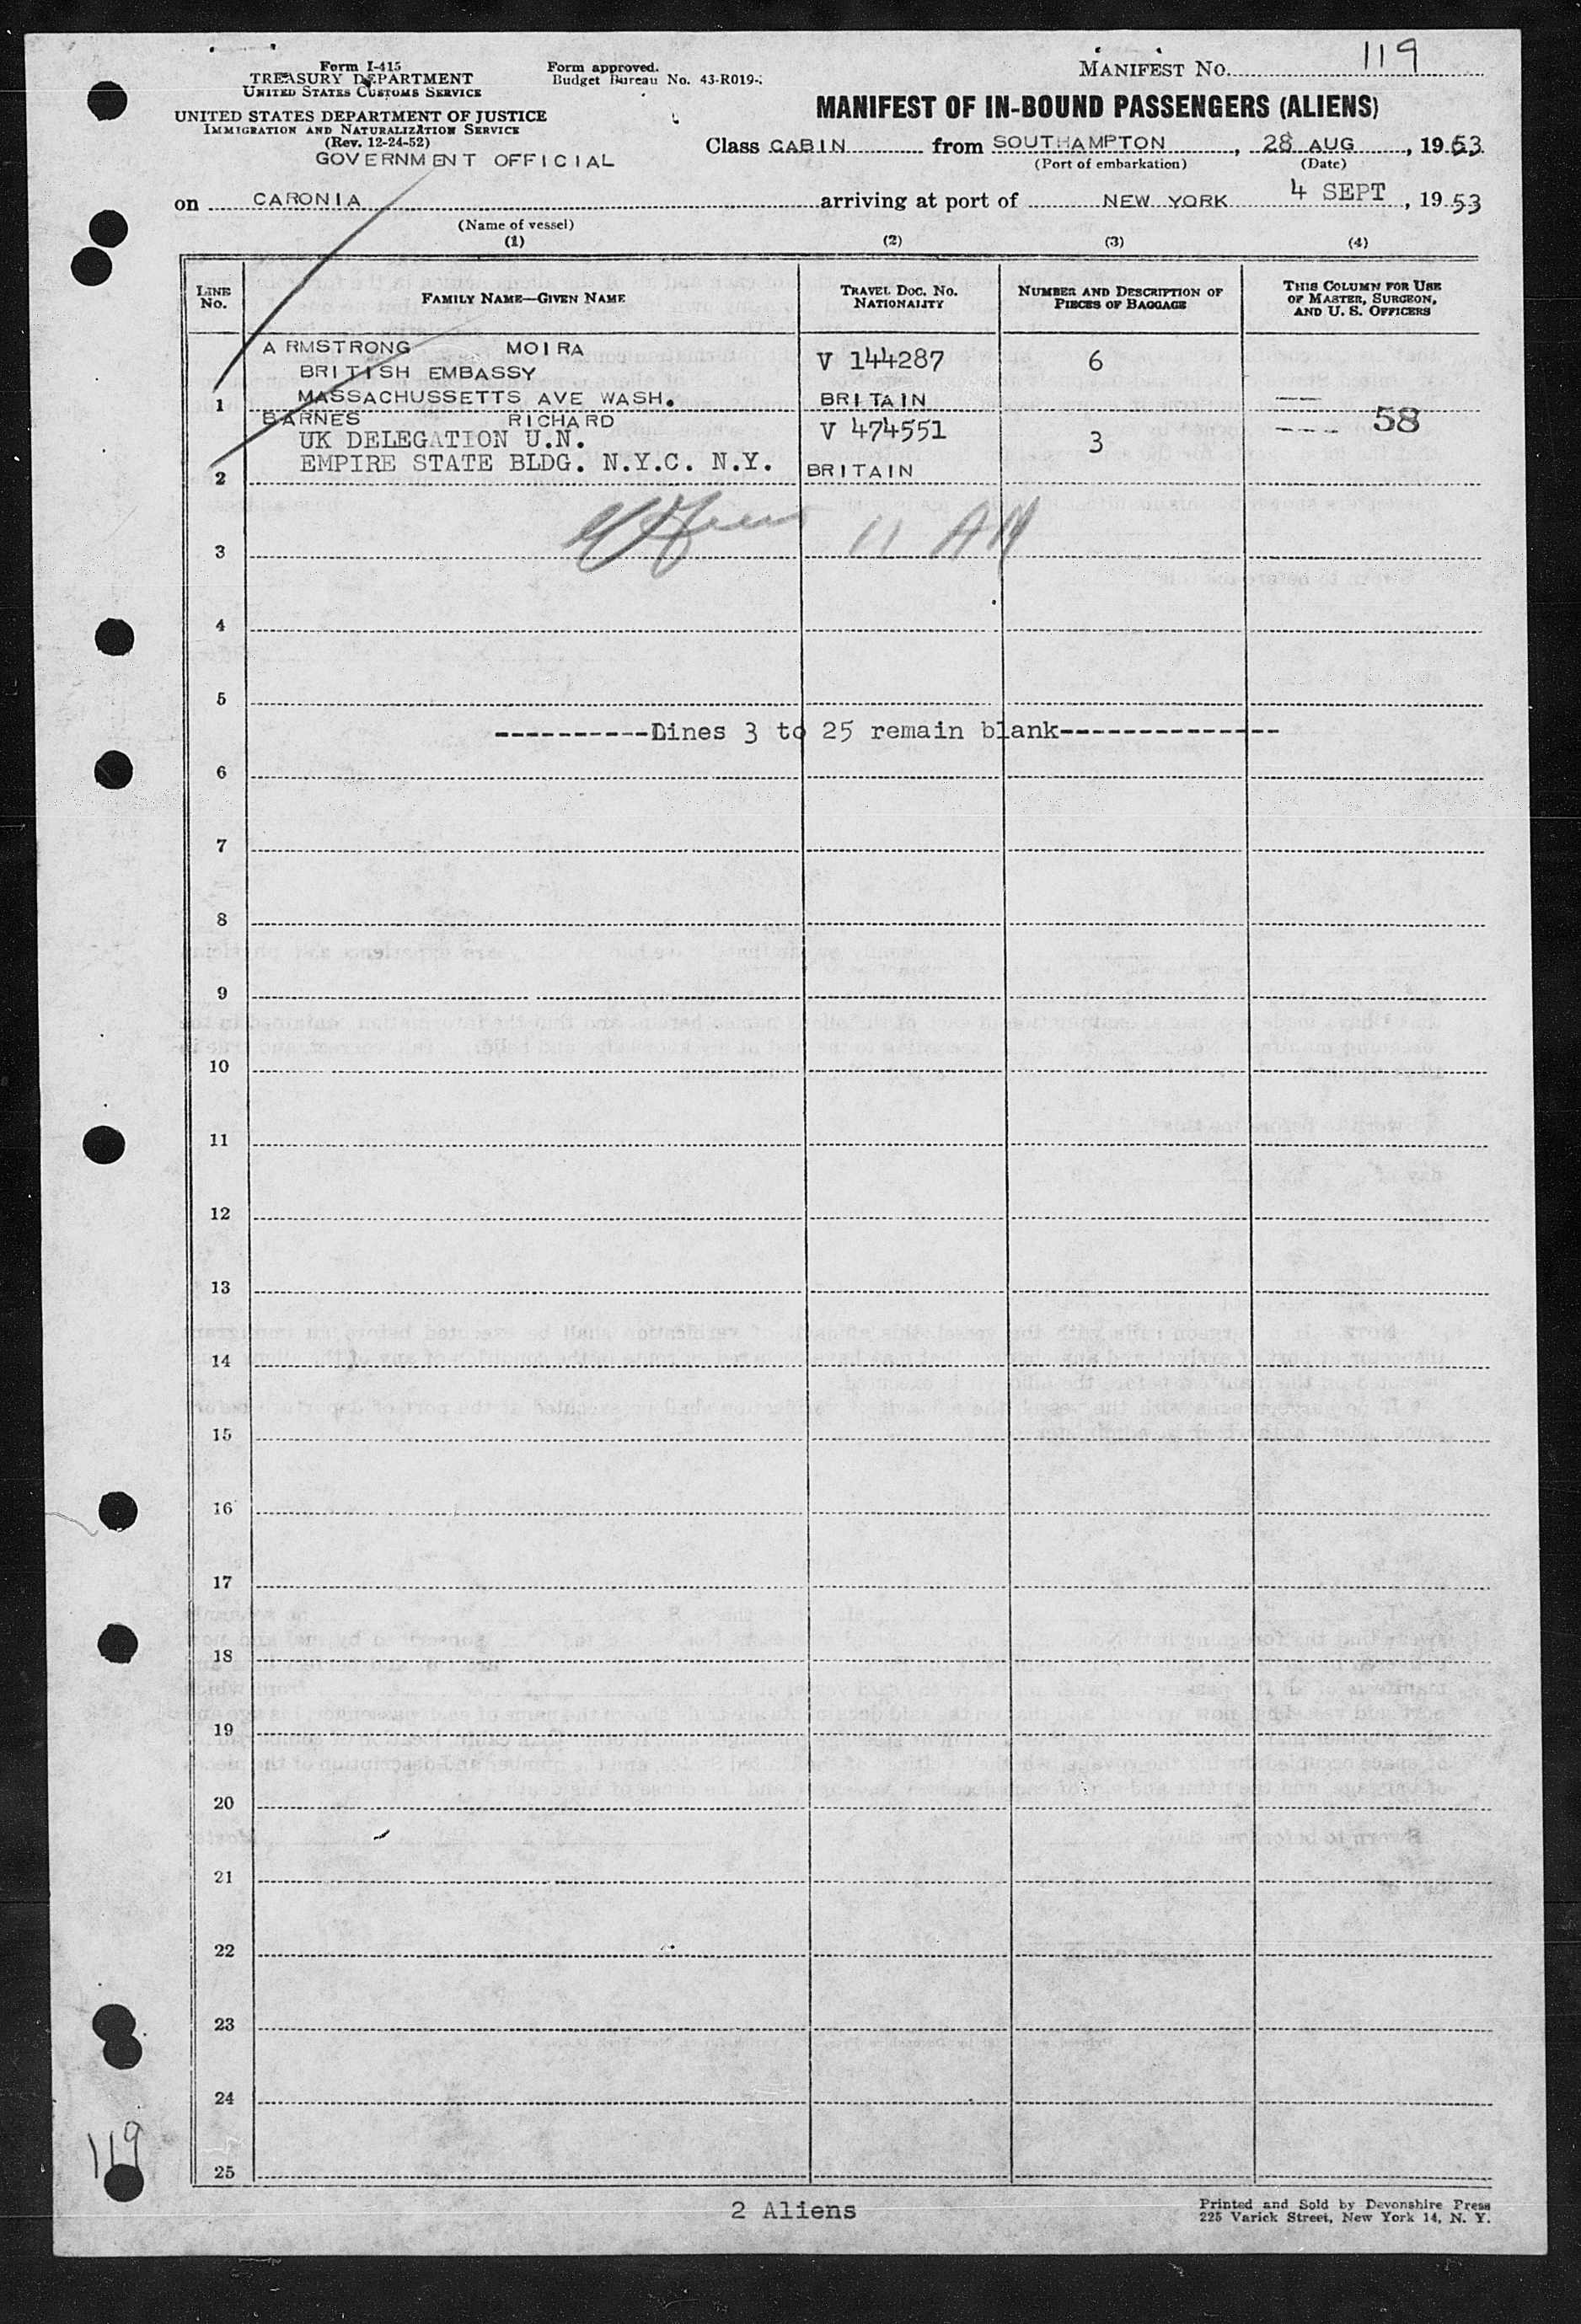 Form I-415
TREASURY DEPARTMENT
UNITED STATES CUSTOMS SERVICE
Form approved.
Budget Bureau No. 43-R019-
MANIFEST NO. 119
UNITED STATES DEPARTMENT OF JUSTICE
IMMIGRATION AND NATURALIZATION SERVICE
(Rev. 12-24-52)
GOVERNMENT OFFICIAL
MANIFEST OF IN-BOUND PASSENGERS (ALIENS)
Class CABIN from SOUTHAMPTON, 28 AUG, 1953
(Port of embarkation) (Date)
on CARONIA arriving at port of NEW YORK 4 SEPT, 1953
(Name of vessel)
(1) (2) (3) (4)
LINE NO.
FAMILY NAME—GIVEN NAME
TRAVEL DOC. NO. NATIONALITY
NUMBER AND DESCRIPTION OF PIECES OF BAGGAGE
THIS COLUMN FOR USE OF MASTER, SURGEON, AND U. S. OFFICERS
ARMSTRONG MOIRA V 144287 6
BRITISH EMBASSY
1 MASSACHUSSETTS AVE WASH. BRITAIN
BARNES RICHARD V 474551 3 58
UK DELEGATION U.N.
2 EMPIRE STATE BLDG. N.Y.C. N.Y. BRITAIN
3 11 AM
4
5
----------Lines 3 to 25 remain blank--------------
6
7
8
9
10
11
12
13
14
15
16
17
18
19
20
21
22
23
24
25
119
2 Aliens
Printed and Sold by Devonshire Press
225 Varick Street, New York 14, N. Y.